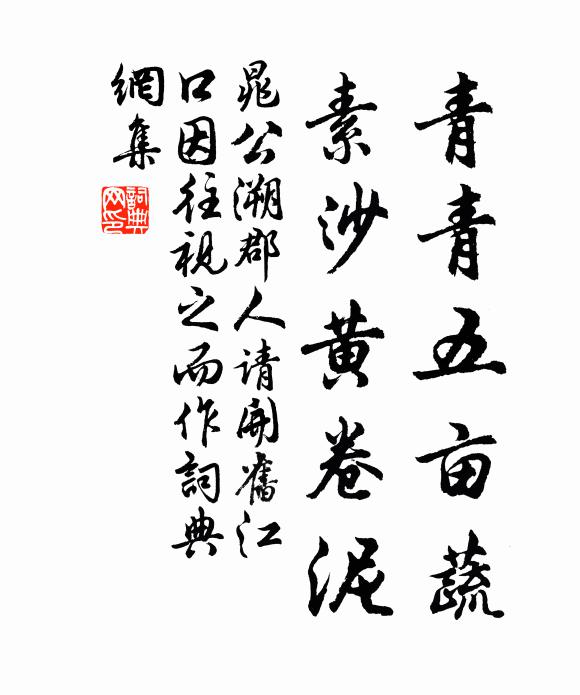 青青五亩蔬
素沙黄卷泥
晁公溯郡人请开旧江
口因往视之而作詞典
網集
詞典
网印